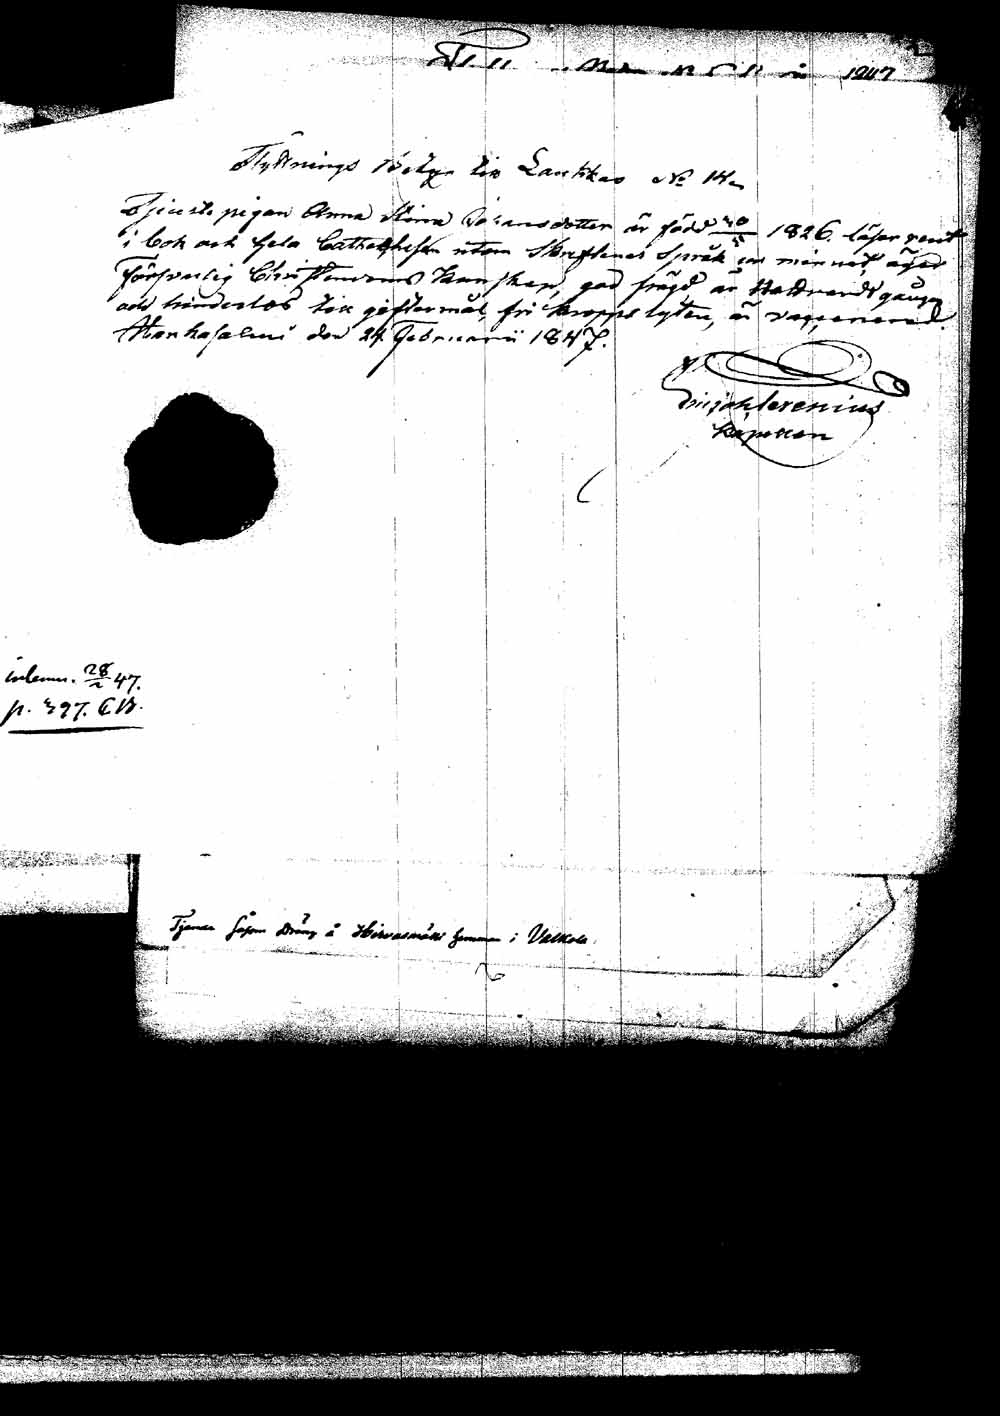 1847
Flyttnings Betyg till Laukkas No 14
Tjenstepigan Anna Stina Johansdotter är född 30/11 1826. läser rent
i bok och hela Cathechesen utom Skriftenes Språk ur minnet, äger
Försvarlig Christendoms Kunskap, god frägd är Nattvardsgången
och hinderlös till giftermål, fri kropps lyten, är vaccinerad.
Hankasalmi den 24 Februarii 1847.
Serenius
Kapellan
inlemn. 28/2 47.
p. 397. CB.
Tjenar såsom Dräng å Hirvasmäki hemman i Valkola.